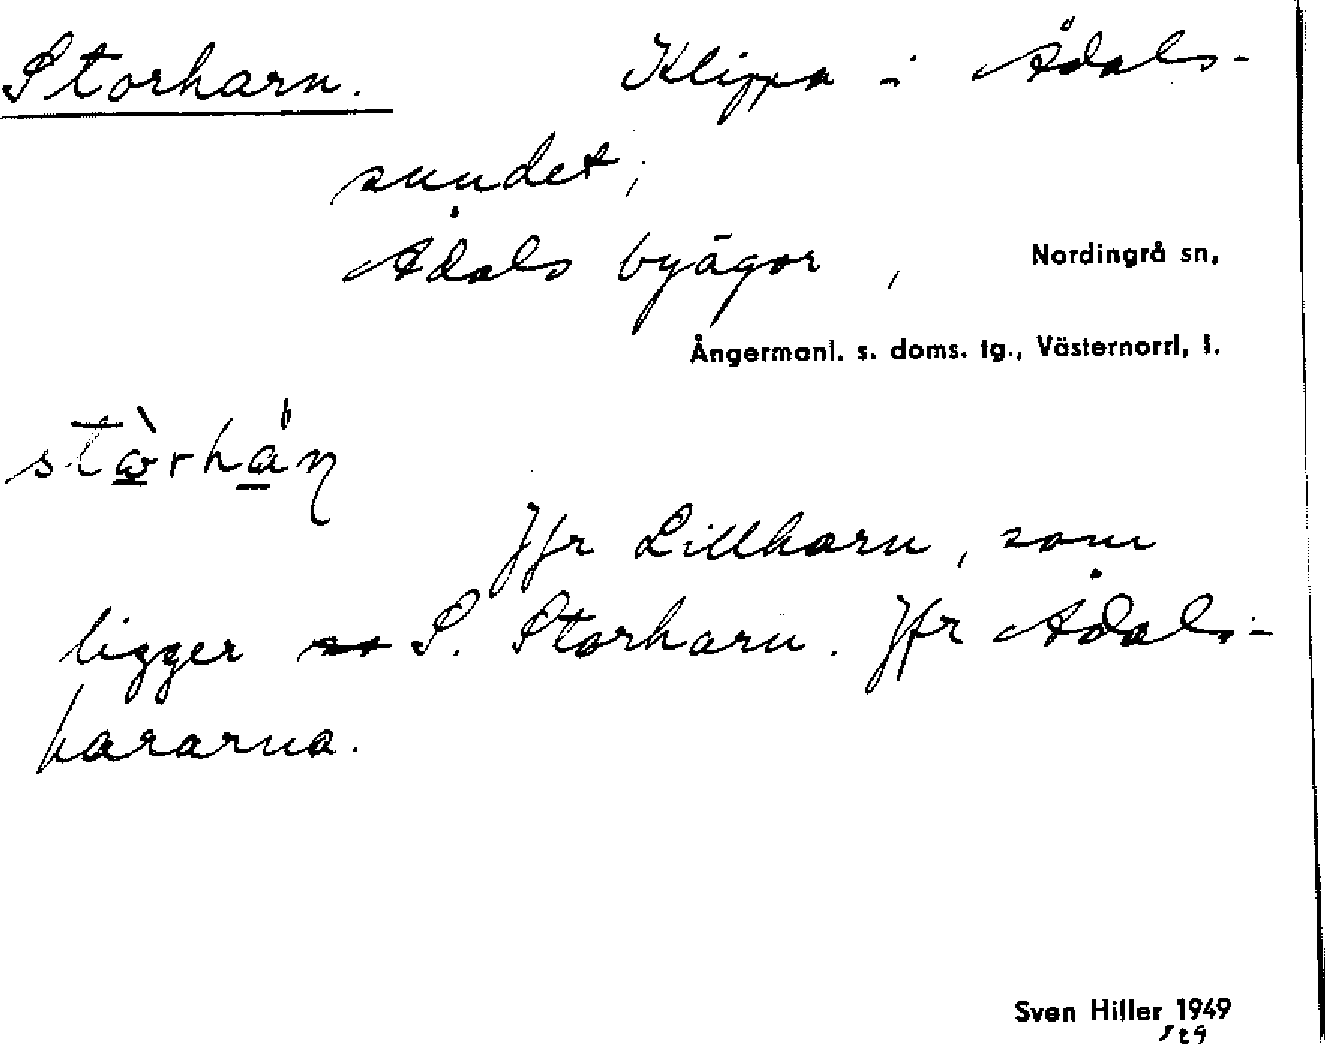 Storharn. Klippa i Ådals-
sundet,
Ådals byägor, Nordingrå sn,
Ångermanl. s. doms. tg., Västernorrl, l.
stòrhán
Jfr Lillharn, som
ligger S. Storharn. Jfr Ådals-
hararna.
Sven Hiller 1949